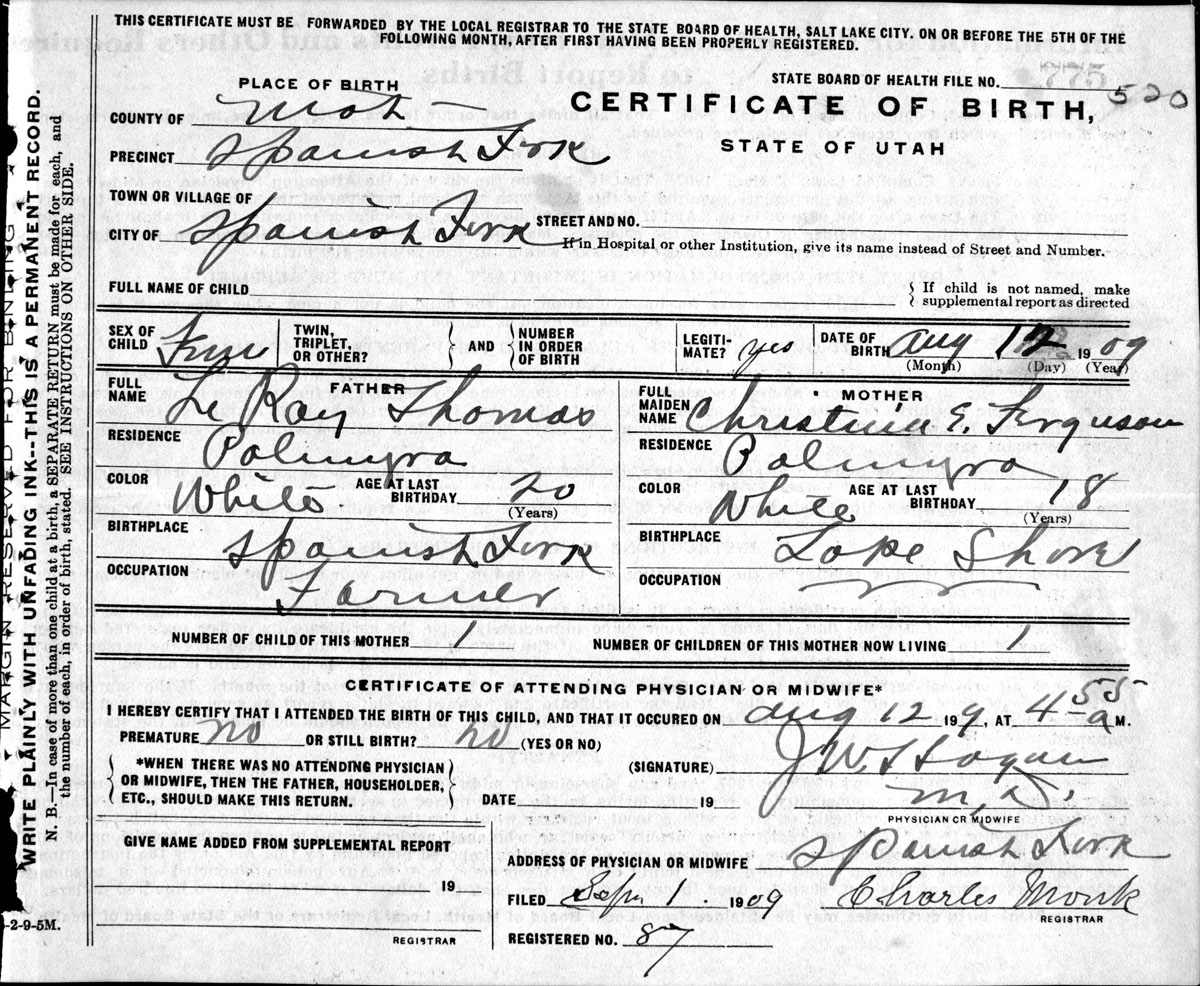 THIS CERTIFICATE MUST BE FORWARDED BY THE LOCAL REGISTRAR TO THE STATE BOARD OF HEALTH, SALT LAKE CITY. ON OR BEFORE THE 5TH OF THE
FOLLOWING MONTH AFTER FIRST HAVING BEEN PROPERLY REGISTERED.
PLACE OF BIRTH
STATE BOARD OF HEALTH FILE NO. 775
CERTIFICATE OF BIRTH, 520
STATE OF UTAH
COUNTY OF Utah
PRECINCT Spanish Fork
TOWN OR VILLAGE OF
CITY OF Spanish Fork STREET AND NO.
If in Hospital or other Institution, give its name instead of Street and Number.
FULL NAME OF CHILD { If child is not named, make
supplemental report as directed
SEX OF CHILD Fem TWIN, TRIPLET, OR OTHER? } AND { NUMBER IN ORDER OF BIRTH LEGITI-MATE? yes DATE OF BIRTH Aug 12 1909
(Month) (Day) (Year)
FATHER
FULL NAME Le Ray Thomas
RESIDENCE Palmyra
COLOR White AGE AT LAST BIRTHDAY 20
(Years)
BIRTHPLACE Spanish Fork
OCCUPATION Farmer
MOTHER
FULL MAIDEN NAME Christina E. Ferguson
RESIDENCE Palmyra
COLOR White AGE AT LAST BIRTHDAY 18
(Years)
BIRTHPLACE Lake Shore
OCCUPATION
NUMBER OF CHILD OF THIS MOTHER 1 NUMBER OF CHILDREN OF THIS MOTHER NOW LIVING 1
CERTIFICATE OF ATTENDING PHYSICIAN OR MIDWIFE*
I HEREBY CERTIFY THAT I ATTENDED THE BIRTH OF THIS CHILD, AND THAT IT OCCURED ON Aug 12 199, AT 4 55 a M.
PREMATURE No OR STILL BIRTH? No (YES OR NO)
{ *WHEN THERE WAS NO ATTENDING PHYSICIAN
OR MIDWIFE, THEN THE FATHER, HOUSEHOLDER,
ETC., SHOULD MAKE THIS RETURN. }
(SIGNATURE) J. W. Hagan
M. D.
DATE 19 PHYSICIAN OR MIDWIFE
GIVE NAME ADDED FROM SUPPLEMENTAL REPORT
19
REGISTRAR
ADDRESS OF PHYSICIAN OR MIDWIFE Spanish Fork
FILED Sep. 1. 1909 Charles Monk
REGISTRAR
REGISTERED NO. 87
MARGIN RESERVED FOR BINDING
WRITE PLAINLY WITH UNFADING INK--THIS IS A PERMANENT RECORD.
N. B.—In case of more than one child at a birth, a SEPARATE RETURN must be made for each, and
the number of each, in order of birth, stated. SEE INSTRUCTIONS ON OTHER SIDE.
-2-9-5M.